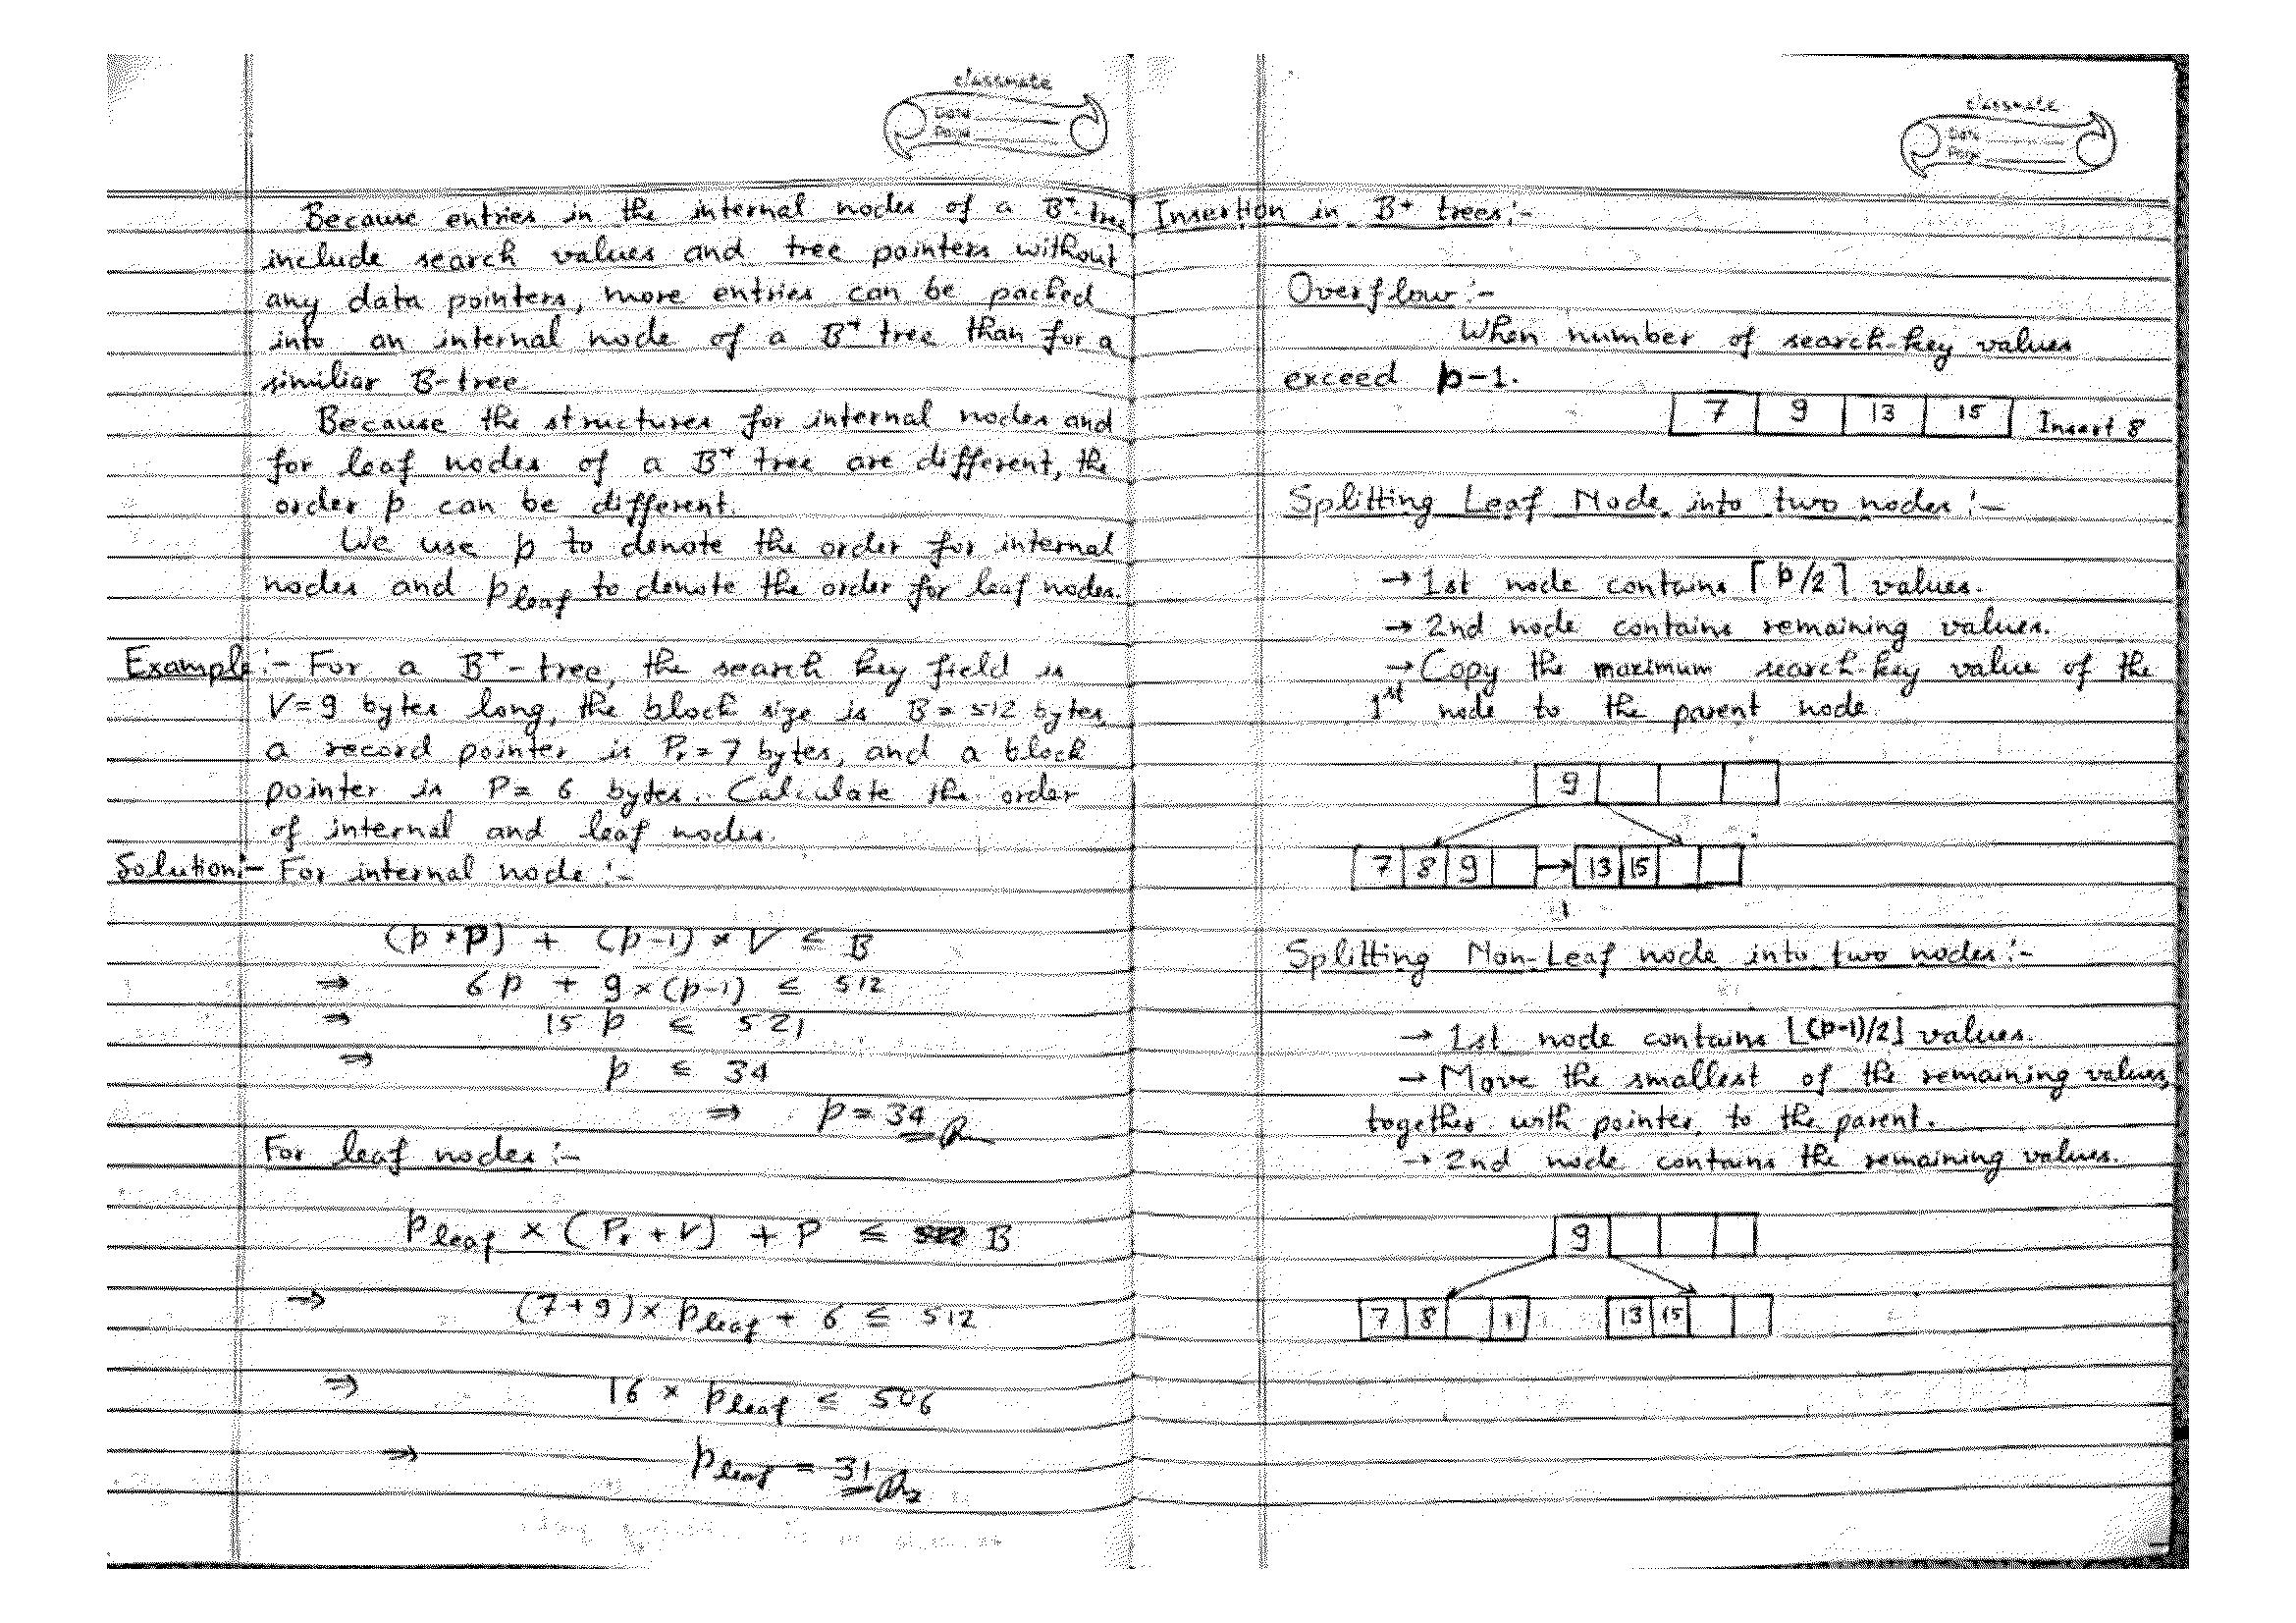 classmate
Date
Page
Because entries in the internal nodes of a B+ tree
include search values and tree pointers without
any data pointers, more entries can be packed
into an internal node of a B+ tree than for a
similiar B-tree
Because the structures for internal nodes and
for leaf nodes of a B+ tree are different, the
order p can be different.
We use p to denote the order for internal
nodes and pleaf to denote the order for leaf nodes.
Example:- For a B+-tree, the search key field is
V=9 bytes long, the block size is B=512 bytes,
a record pointer is Pr=7 bytes, and a block
pointer is P= 6 bytes. Calculate the order
of internal and leaf nodes.
Solution:- For internal node :-
(p * p) + (p-1) * V ≤ B
⇒ 6p + 9×(p-1) ≤ 512
⇒ 15 p ≤ 521
⇒ p ≤ 34
⇒ p = 34
For leaf nodes :-
pleaf × (Pr + V) + P ≤ B
⇒ (7+9)× pleaf + 6 ≤ 512
⇒ 16 × pleaf ≤ 506
⇒ pleaf = 31
classmate
Date
Page
Insertion in B+ trees:-
Overflow:-
When number of search-key values
exceed p-1.
7 9 13 15 Insert 8
Splitting Leaf Node into two nodes:-
→ 1st node contains ⌈p/2⌉ values.
→ 2nd node contains remaining values.
→ Copy the maximum search-key value of the
1st node to the parent node.
9
7 8 9 → 13 15
Splitting Non-Leaf node into two nodes:-
→ 1st node contains ⌊(p-1)/2⌋ values.
→ Move the smallest of the remaining values,
together with pointer, to the parent.
→ 2nd node contains the remaining values.
9
7 8 1 13 15